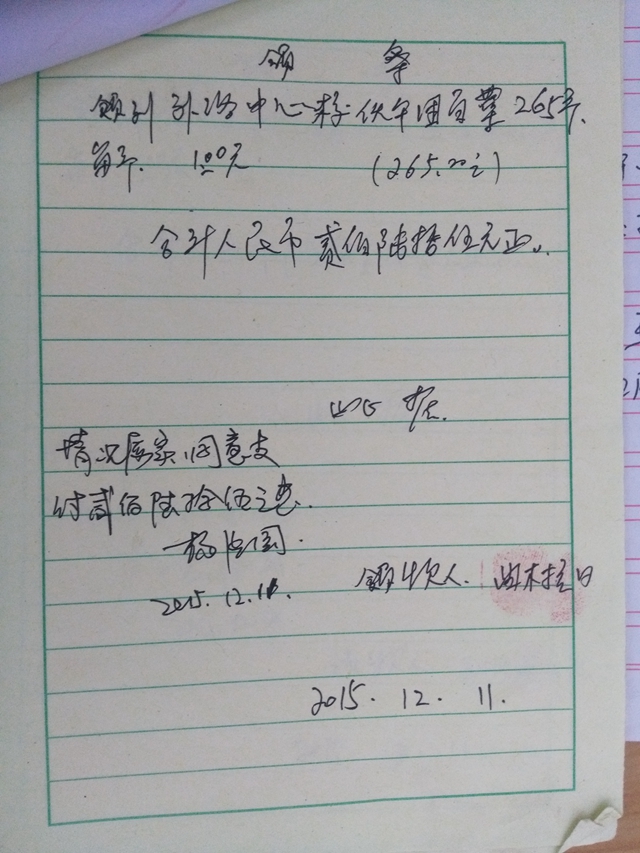 领 条
领到 中心校 午 265
单价. 1.00元 (265.00元)
合计人民币贰佰陆拾伍元正.
此据.
情况属实,同意支
付贰佰陆拾伍元整.
杨 国.
2015.12.11.
领款人. 木 日
2015. 12. 11.